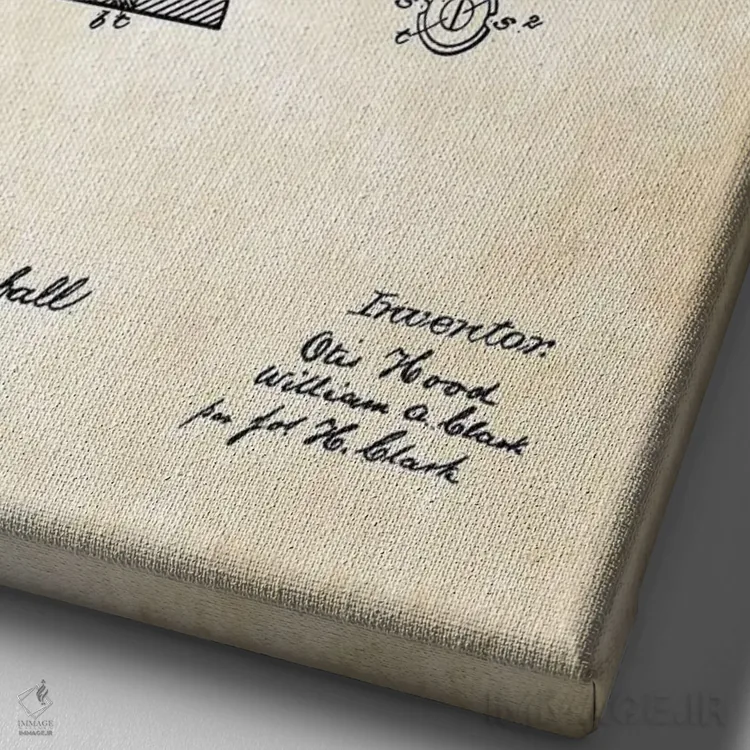 f t
s. 2
t
Inventor.
Otis Hood
William A. Clark
per H. Clark
IMMAGE
IMMAGE.IR
IMMAGE.IR